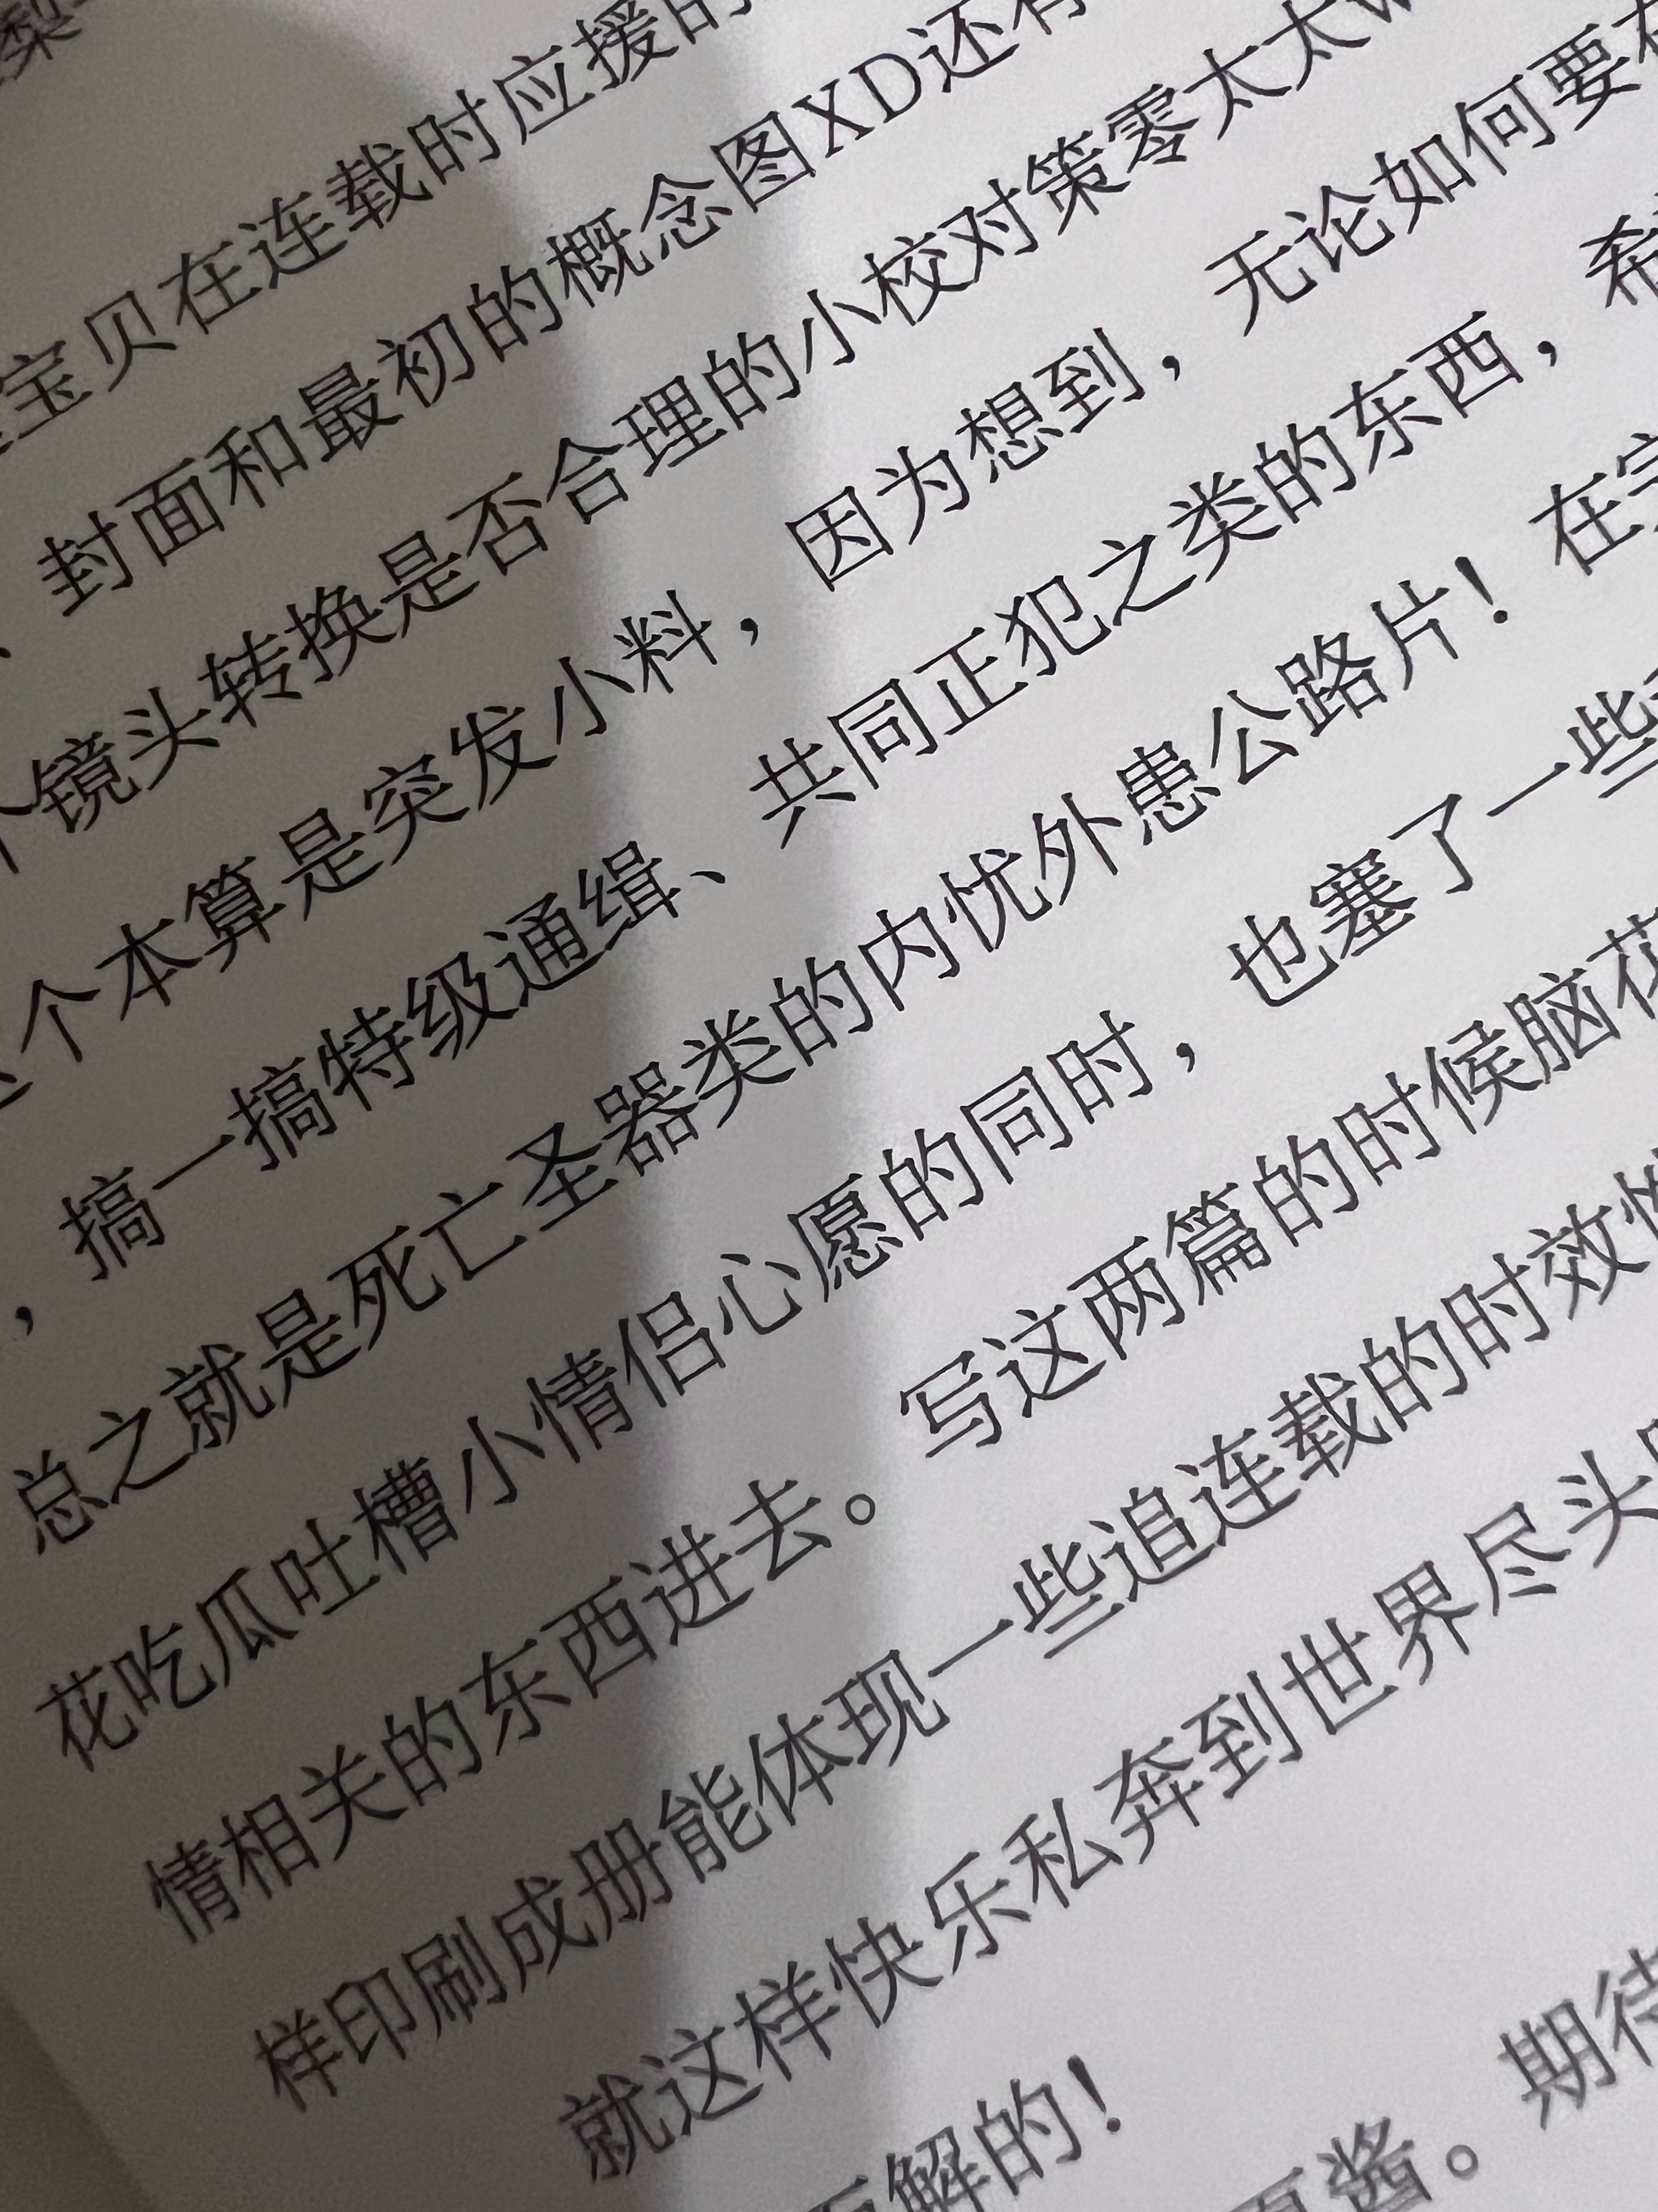 宝贝在连载时应援的
、封面和最初的概念图XD还有
个镜头转换是否合理的小校对策零太太w
个本算是突发小料，因为想到，无论如何要在
，搞一搞特级通缉、共同正犯之类的东西，希
总之就是死亡圣器类的内忧外患公路片！在
花吃瓜吐槽小情侣心愿的同时，也塞了一些
情相关的东西进去。写这两篇的时候脑花
样印刷成册能体现一些追连载的时效性
就这样快乐私奔到世界尽头
解的！
酱。期待